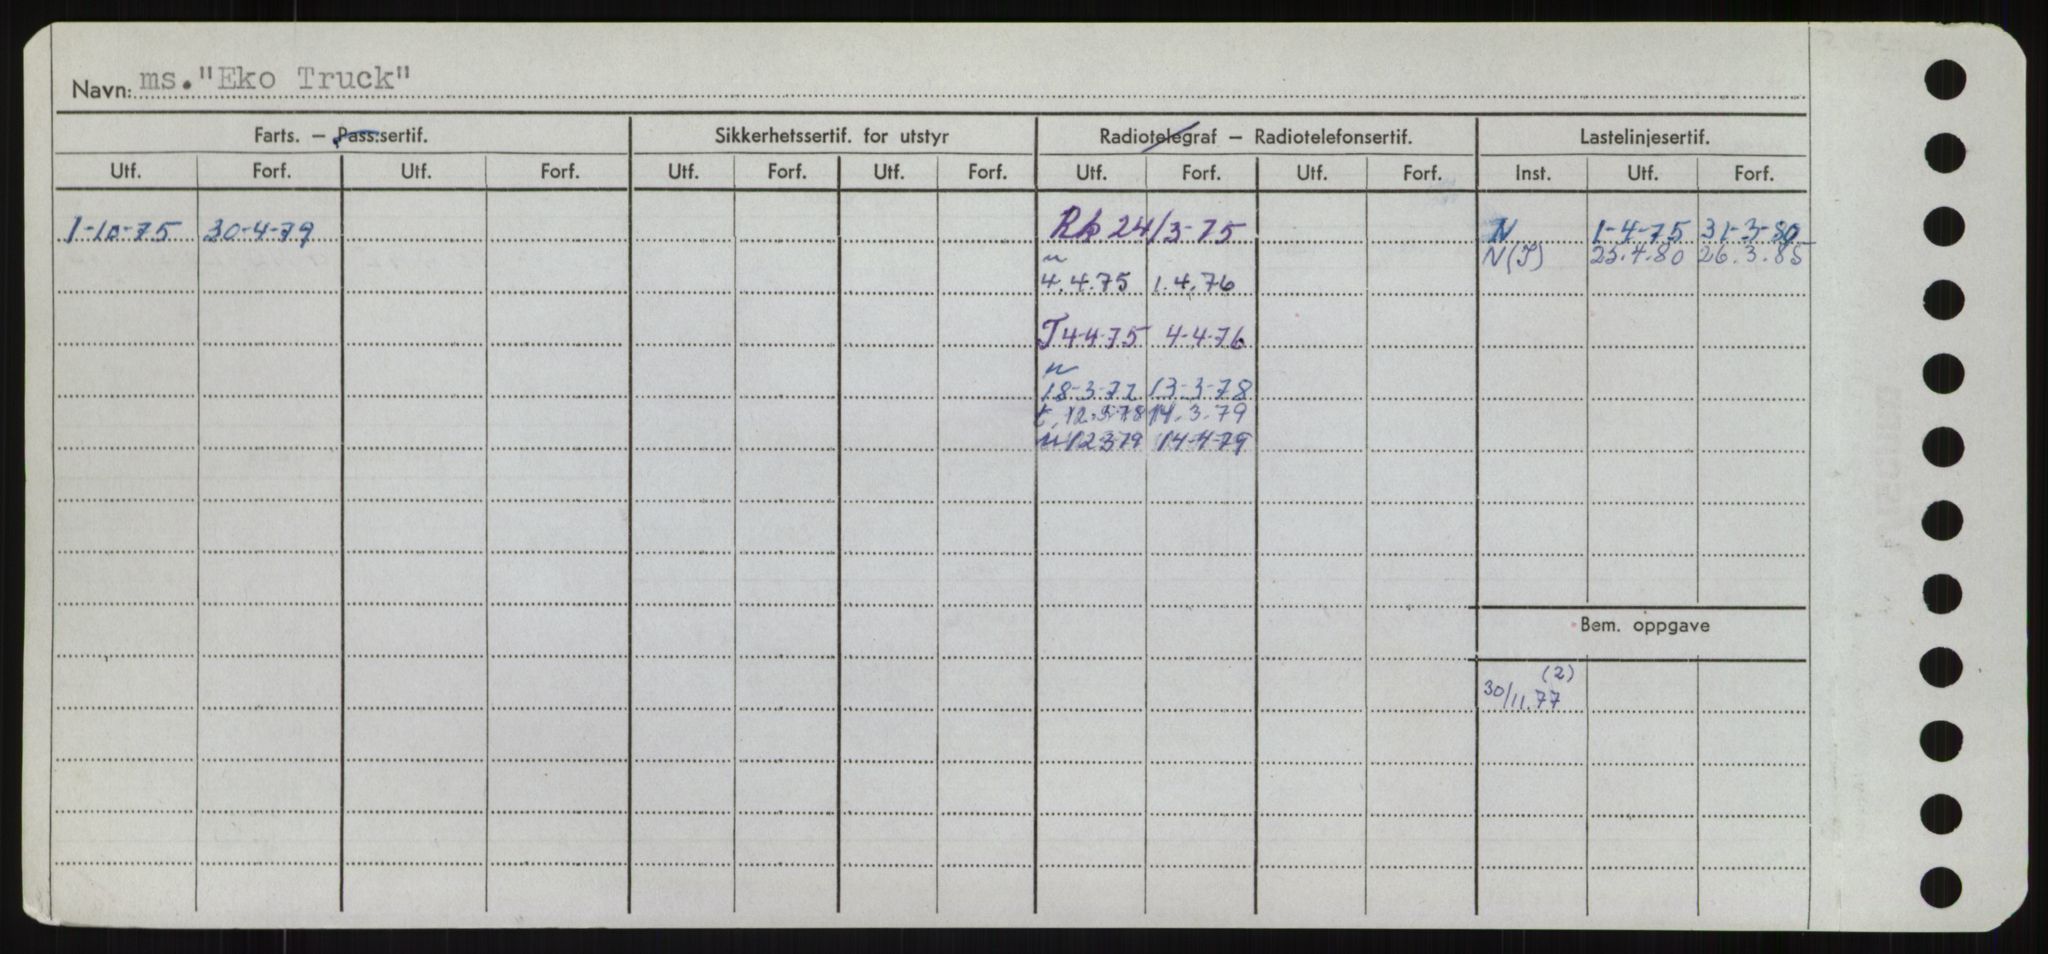 Navn: ms."Eko Truck"
Farts. – Pass.sertif. Sikkerhetssertif. for utstyr Radiotelegraf – Radiotelefonsertif. Lastelinjesertif.
Utf. Forf. Utf. Forf. Utf. Forf. Utf. Forf. Utf. Forf. Utf. Forf. Inst. Utf. Forf.
1-10-75 30-4-79 24/3-75 N 1-4-75 31-3-80
N(T) 25.4.80 26.3.85
4.4.75 1.4.76
T 4-4-75 4-4-76
18-3-77 13-3-78
t. 12.3.78 14.3.79
n 12379 14-4-79
Bem. oppgave
(2)
30/11.77